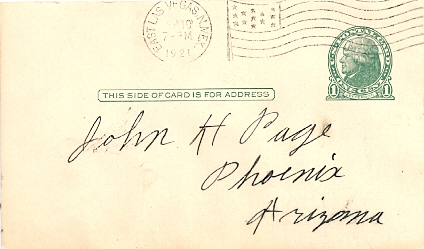 EAST LAS VEGAS, N. MEX.
7- PM
1921
THIS SIDE OF CARD IS FOR ADDRESS
1 1
John H Page
Phoenix
Arizona